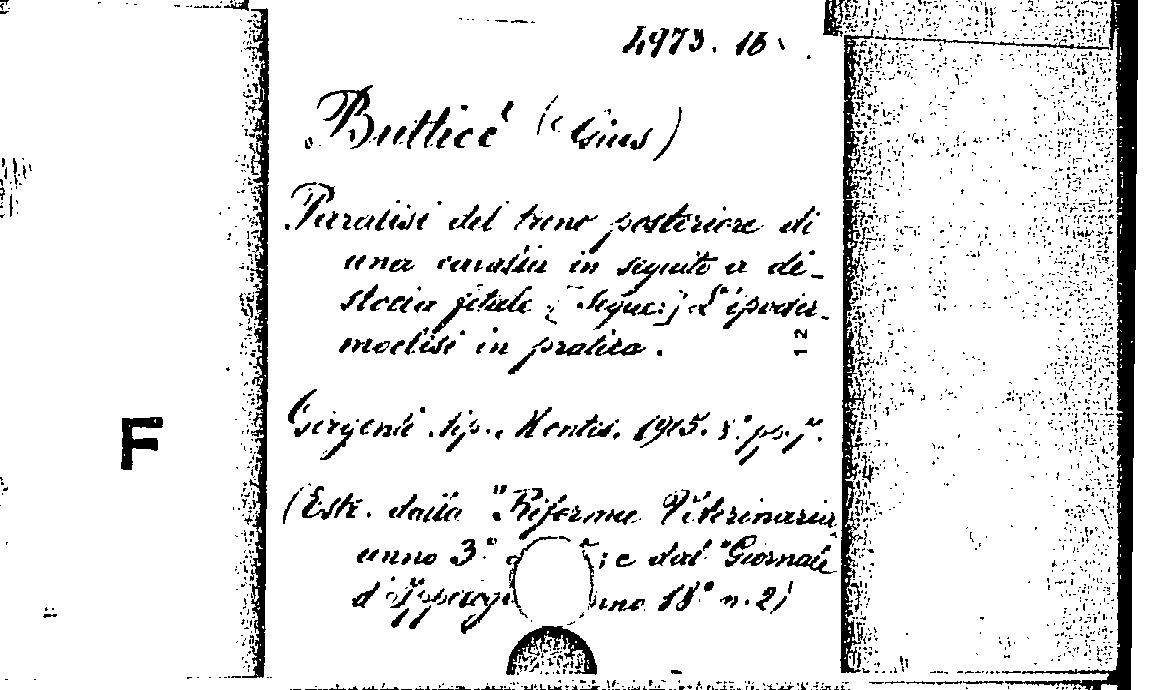 4973. 16
Butticè (Gius)
Paralisi del treno posteriore di
una cavalla in seguito a di-
stocia fetale [Segue:] L'ipoder-
moclisi in pratica.
12
Girgenti tip. Montes. 1915. 8° pp. 7.
F
(Estr. dalla "Riforma Veterinaria
anno 3° e dal "Giornale
d'Ippologi 18° n. 2)